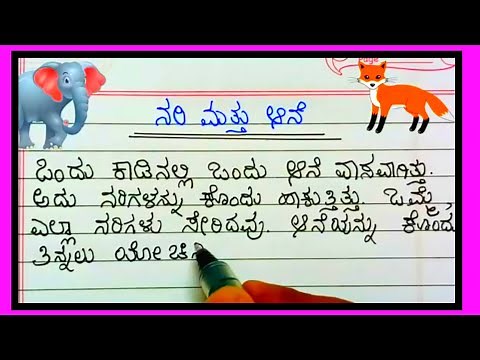 Page
ನರಿ ಮತ್ತು ಆನೆ
ಒಂದು ಕಾಡಿನಲ್ಲಿ ಒಂದು ಆನೆ ವಾಸವಾಗಿತ್ತು.
ಅದು ನರಿಗಳನ್ನು ಕೊಂದು ಹಾಕುತ್ತಿತ್ತು. ಒಮ್ಮೆ,
ಎಲ್ಲಾ ನರಿಗಳು ಸೇರಿದವು. ಆನೆಯನ್ನು ಕೊಂದು
ತಿನ್ನಲು ಯೋಚಿ